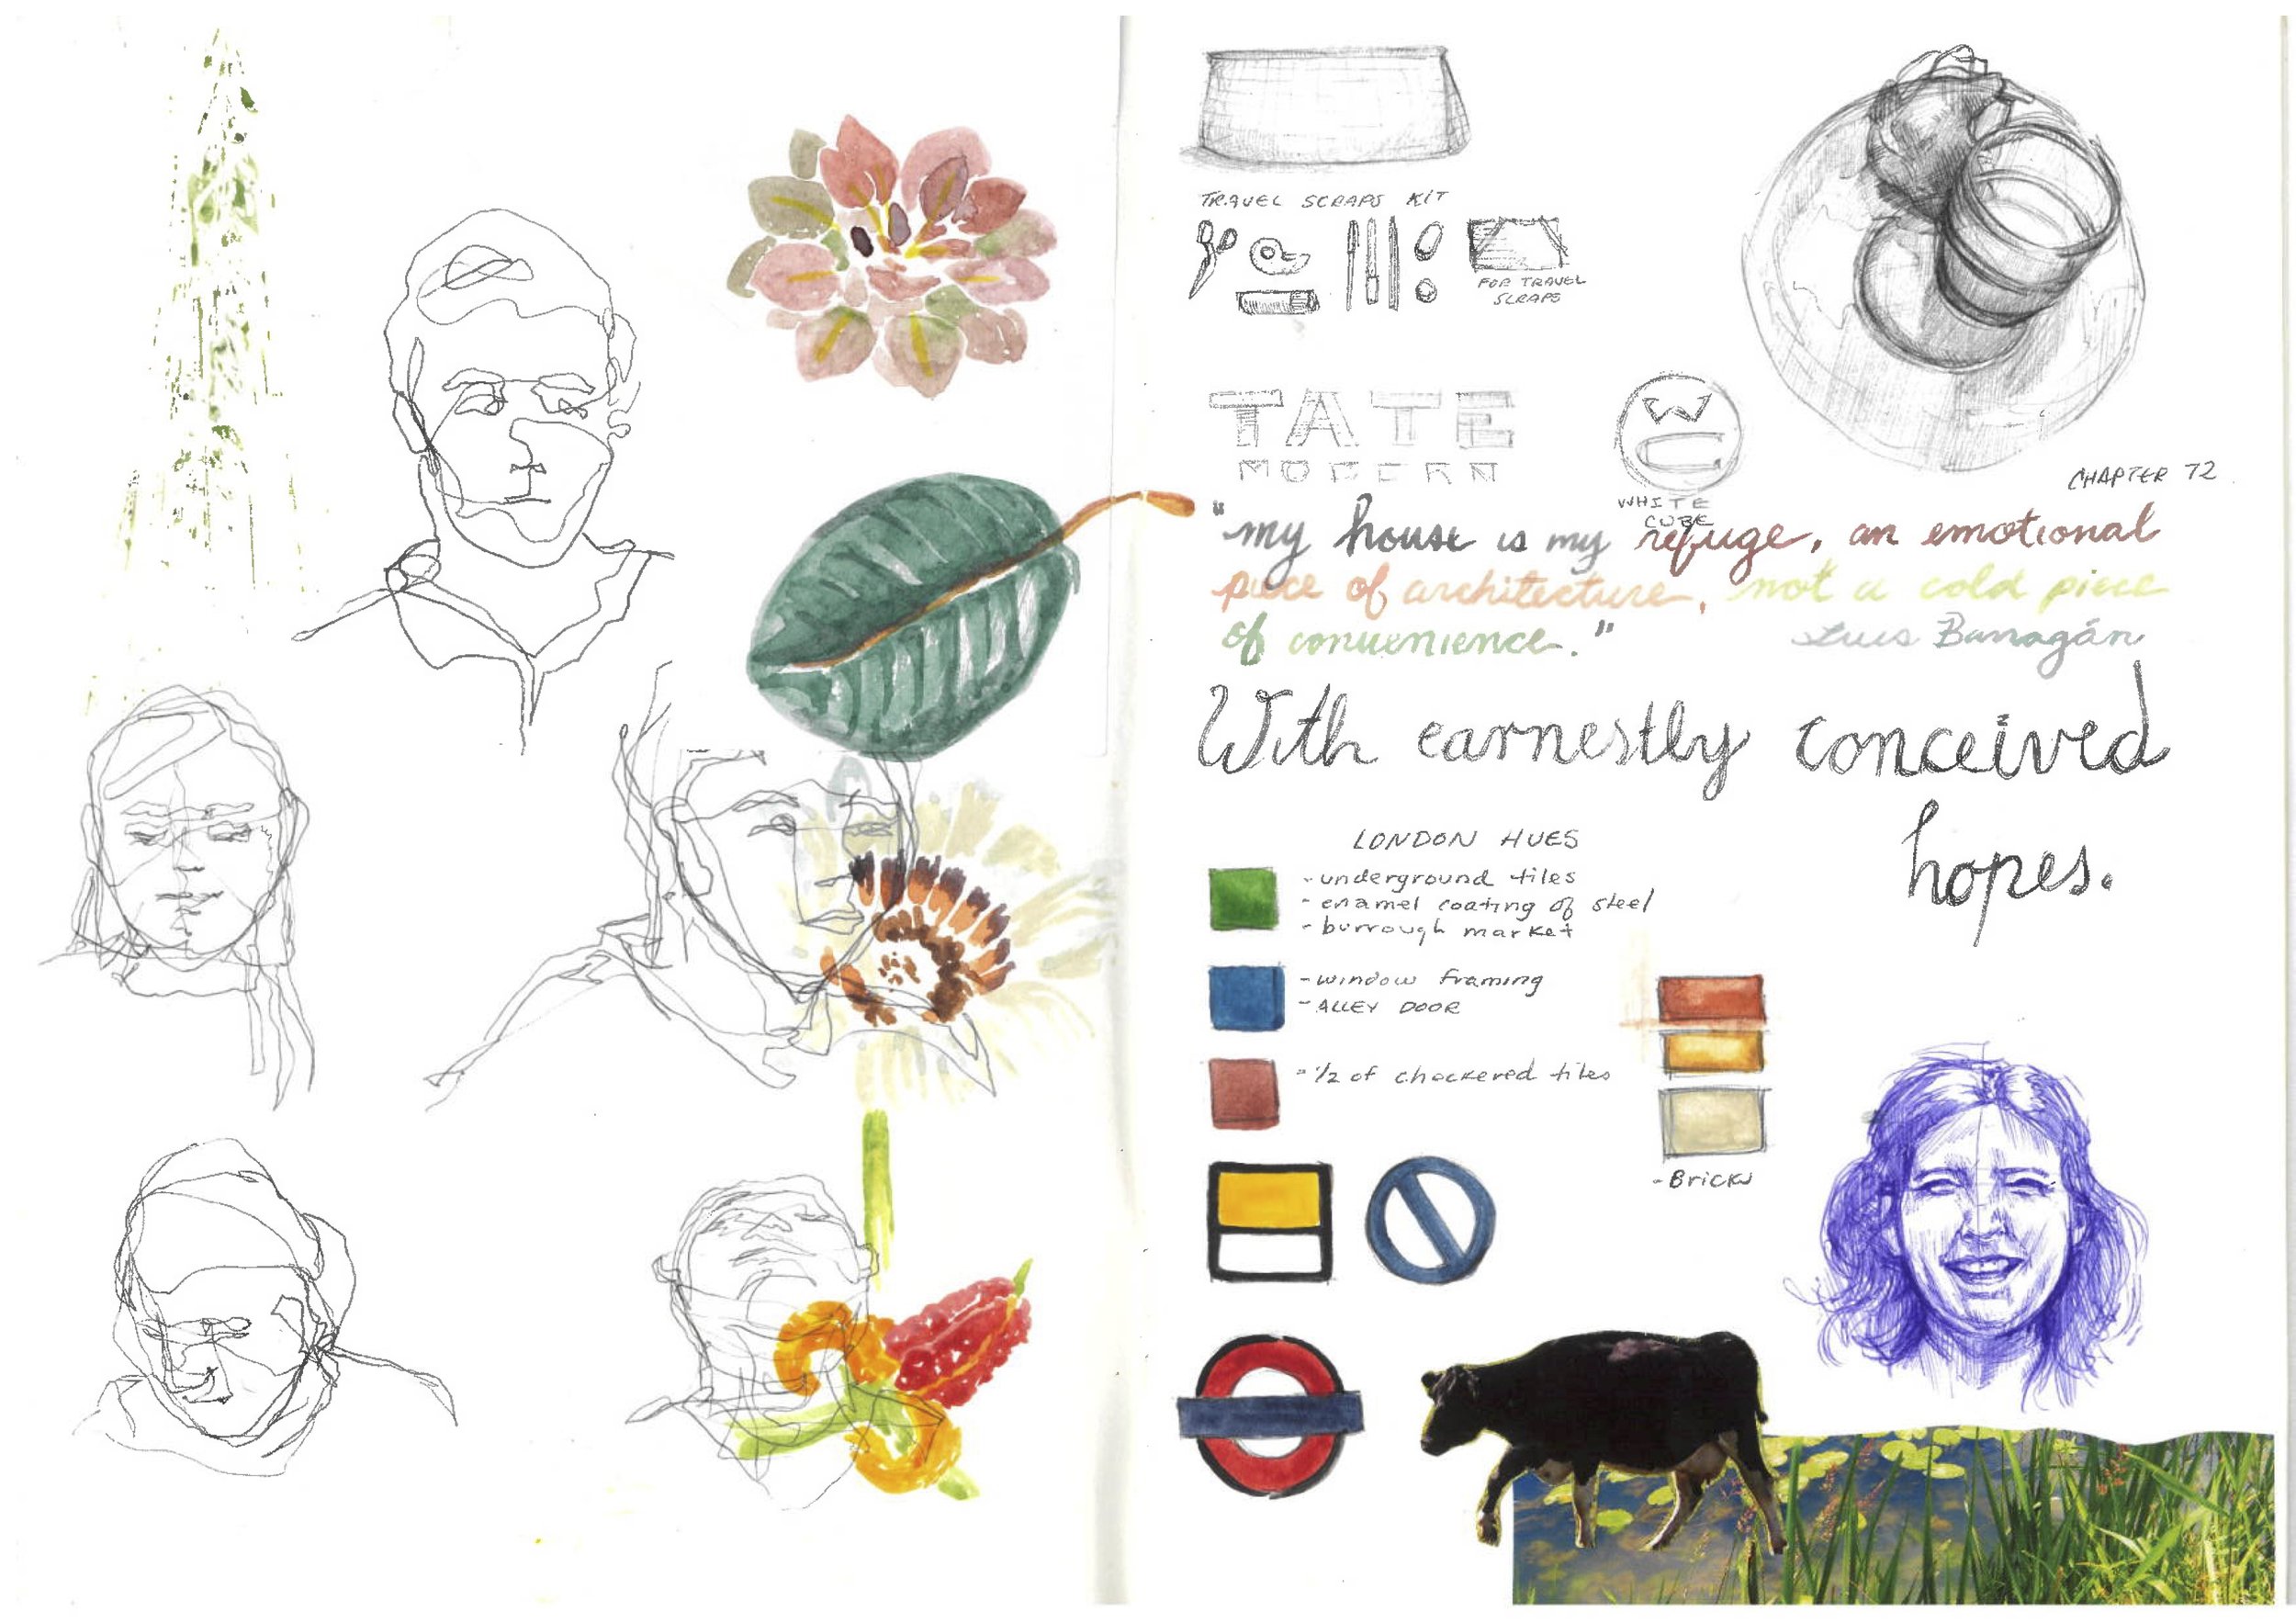 TRAVEL SCRAPS KIT
FOR TRAVEL
SCRAPS
TATE
MODERN
W
WHITE
CUBE
CHAPTER 72
"my house is my refuge, an emotional
piece of architecture, not a cold piece
of convenience."
Luis Barragán
With earnestly conceived
hopes.
LONDON HUES
- underground tiles
- enamel coating of steel
- burrough market
- window framing
- ALLEY DOOR
- 1/2 of checkered tiles
- Bricks